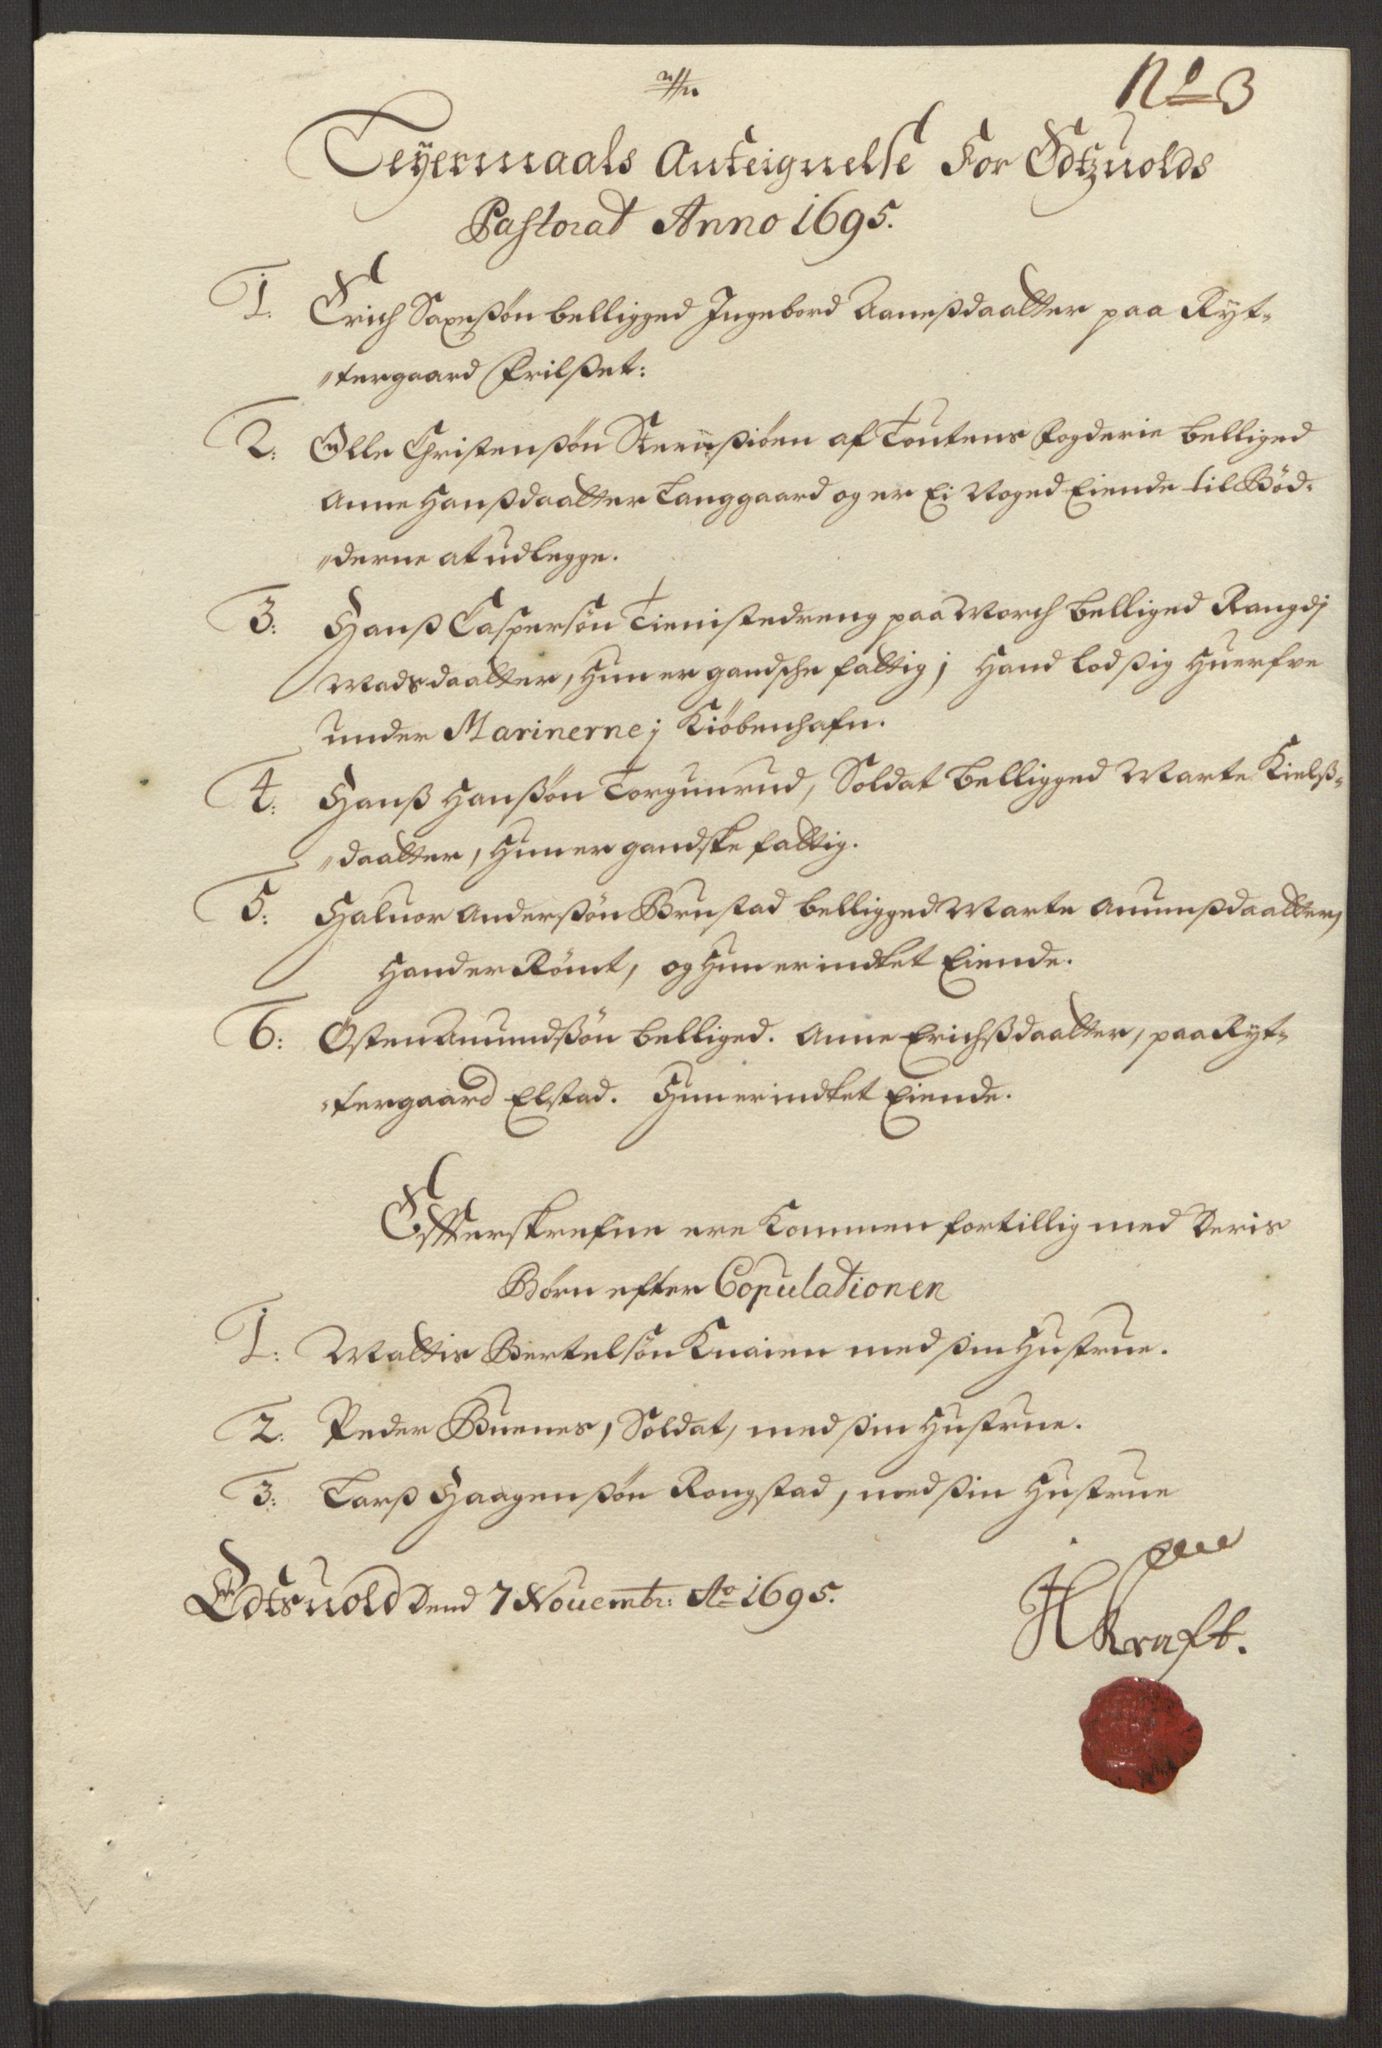 No 3
Leyermaals Anteignelse For Edtzuolds
Pastorat Anno 1695.
1. Erich Saxeßøn belligged Ingebord Aaneßdaatter paa Ryt-
tergaard Frilßet:
2. Olle Christenßøn Steenßiøen af Toutens fogderie belliged
Anne Hanßdaatter Langgaard og er Ei Noged Eiende til Bød-
derne at udlegge.
3: Hanß Caspersøn Tienistedreng paa Morch belliged Rangdj
Madsdaatter, Hun er gandsche fattig; Hand lod ßig Huerfve
under Marinerne j Kiøbenhafn.
4: Hanß Hanßøn Torgunrud, Soldat belligged Marte Kielß-
daatter, Hun er gandske fattig.
5: Haluor Anderßøn Brustad belligged Marte Amunßdaatter,
Hand er Rømt, og Hun er indtet Eiende.
6: Osten Amundßøn belliged. Anne Erichßdaatter, paa Ryt-
tergaard Elstad. Hun er indtet Eiende.
Effterskrefne ere Kommen fortillig med deris
Børn efter Copulationen
1: Mattis Bertelsøn Knaien med ßin Hustrue.
2: Peder Buenes, Soldat, med ßin Hustrue.
3: Larß Haagenßøn Rongstad, med ßin Hustrue
Edtsuold dend 7 Nouembr: Ao 1695.
H Kraft.